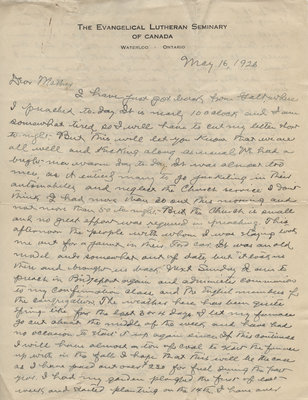 THE EVANGELICAL LUTHERAN SEMINARY
OF CANADA
WATERLOO - ONTARIO
May 16, 1926
Dear Mother,
I have just got back from Galt where
I preached to-day. It is nearly 10 o'clock and I am
somewhat tired so I will have to cut my letter short
to-night. But this will let you know that we are
all well and kicking along as usual. We had a
bright warm day to-day. It was almost too
nice, as it entices many to go gasketing in their
automobiles and neglect the Church service. I don't
think I had more than 20 out this morning and
not more than 30 to-night. But the Church is small
and no great effort was required in preaching. This
afternoon the people with whom I was staying took
me out for a jaunt in their Ford car. It was an old
model and somewhat out of date, but it took us
there and brought us back. Next Sunday I am to
preach in again and administer communion
to my confirmation class and the adult members of
the congregation. The weather here has been quite
spring like for the last 3 or 4 days. I let my furnace
go out about the middle of the week and have had
no occasion to start it up again since. If this continues
I will have almost a ton of coal to start the furnace
up with in the fall. I hope that this will be the case
as I have paid out over for fuel during the past
year. I had my garden ploughed the first of last
week and started planting on the 14th. I have over